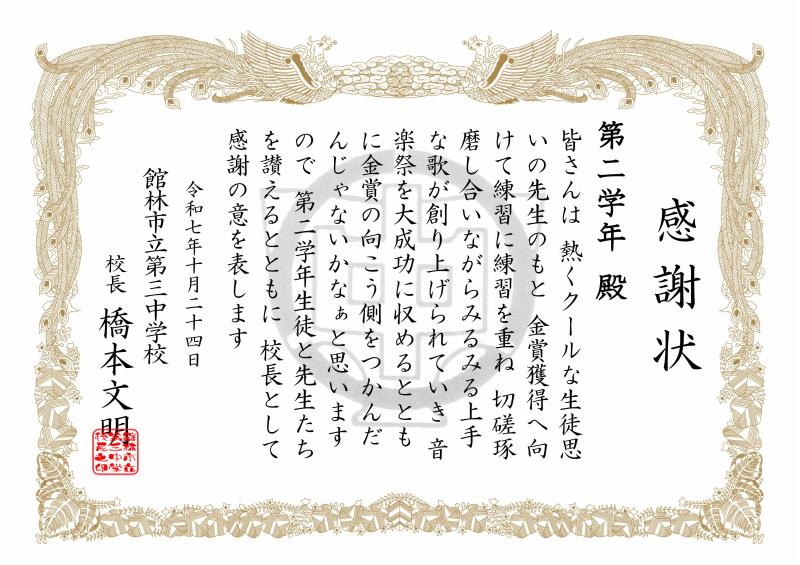 感謝状
第二学年 殿
皆さんは 熱くクールな生徒思
いの先生のもと 金賞獲得へ向
けて練習に練習を重ね 切磋琢
磨し合いながらみるみる上手
な歌が創り上げられていき 音
楽祭を大成功に収めるととも
に金賞の向こう側をつかんだ
んじゃないかなぁと思います
ので 第二学年生徒と先生たち
を讃えるとともに 校長として
感謝の意を表します
令和七年十月二十四日
館林市立第三中学校
校長 橋本文明